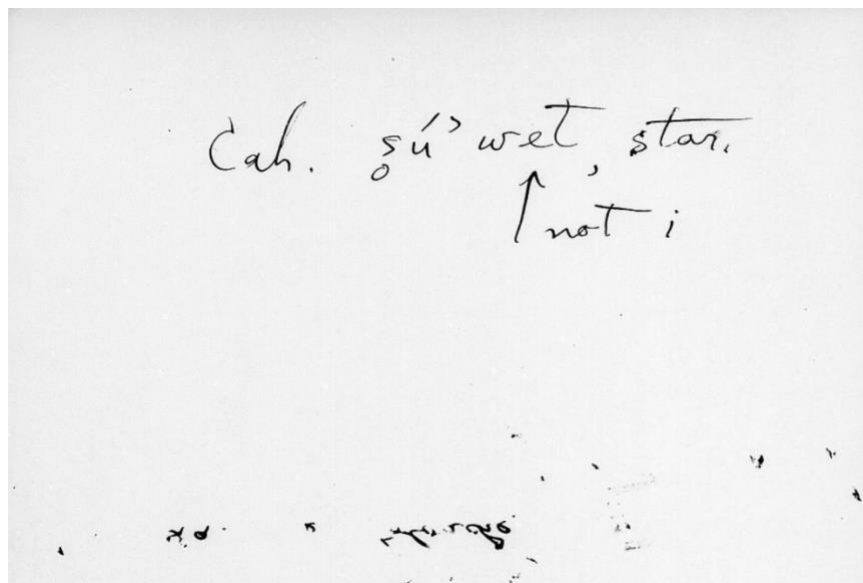 Cah. s̥ú’wet, star.
↑ not i